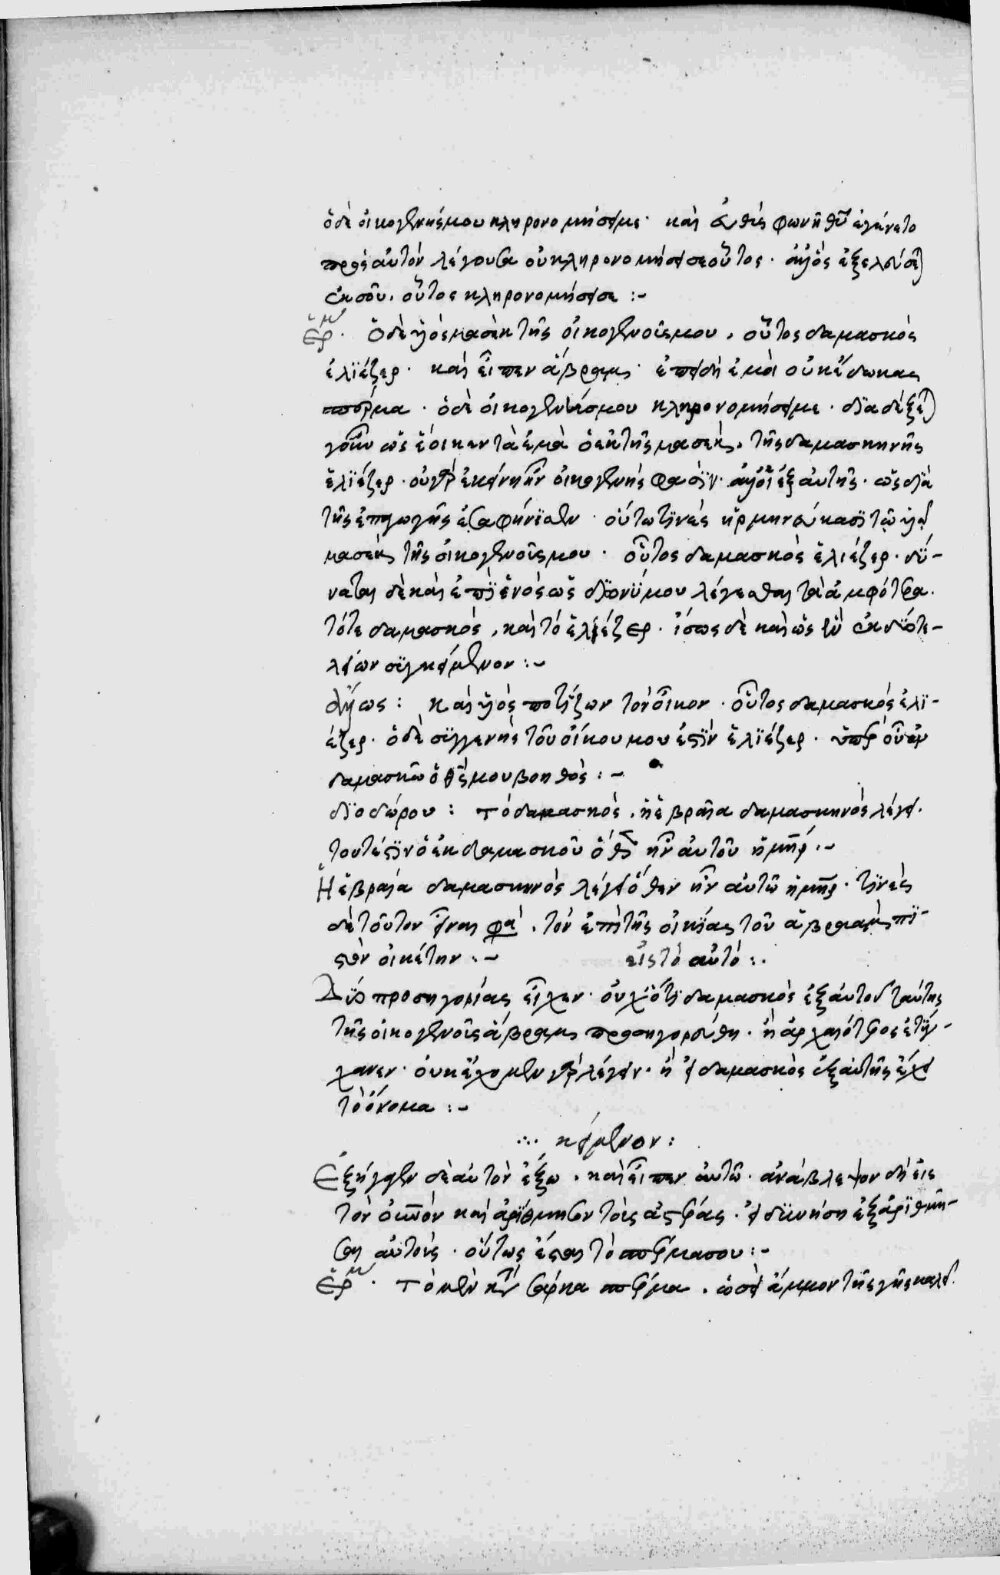 ὁ δὲ οἰκογενής μου κληρονομήσει με· καὶ εὐθὺς φωνὴ θυ ἐγένετο
πρὸς αὐτὸν λέγουσα οὐ κληρονομήσει σε οὗτος· ἀλλ' ὃς ἐξελεύσε
ἐκ σοῦ, οὗτος κληρονομήσει σε :-
Ὁ δὲ υἱὸς μασὲκ τῆς οἰκογενοῦς μου, οὗτος δαμασκὸς
ἐλϊέζερ· καὶ εἶπεν ἄβραμ· ἐπειδὴ ἐμοὶ οὐκ ἔδωκας
σπέρμα· ὁ δὲ οἰκογενής μου κληρονομήσει με· διαδέξε
γοῦν ὡς ἔοικεν τὰ ἐμὰ ὁ ἐκ τῆς μασέκ, τῆς δαμασκηνῆς
ἐλϊέζερ· οὐ γὰρ ἐκείνη ἦν οἰκογενής φασϊν· ἀλλ' ὁ ἐξ αὐτῆς· ὡς διὰ
τῆς ἐπαγωγῆς ἐσαφήνϊσεν· οὕτω τινὲς ἡρμηνεύκασϊ τῶ
μασὲκ τῆς οἰκογενοῦς μου· οὗτος δαμασκὸς ἐλιέζερ· δύ-
ναται δὲ καὶ ἐπὶ ἑνὸς ὡς διονύμου λέγεσθαι τὰ ἀμφότερα·
τότε δαμασκὸς, καὶ τὸ ἐλϊέζερ· ἴσως δὲ καὶ ὡς ἓν ἐκ δύο τε-
λείων συγκείμενον :-
ἄλλως : καὶ υἱὸς ποτίζων τὸν οἶκον· οὗτος δαμασκὸς ἐλϊ-
έζερ· ὁ δὲ συγγενὴς τοῦ οἴκου μου ἐστὶν ἐλϊέζερ·
δαμασκῶ ὁ θς μου βοηθὸς :-
διοδώρου : τὸ δαμασκὸς, ἡ ἑβραΐα δαμασκηνὸς λέγει·
τουτέστιν ὁ ἐκ δαμασκοῦ ὅθεν ἦν αὐτοῦ ἡ μηρ :-
Ἡ ἑβραΐα δαμασκηνὸς λέγει ὅθεν ἦν αὐτῶ ἡ μηρ· τινὲς
δὲ τοῦτον εἶναι φα, τὸν ἐπὶ τῆς οἰκίας τοῦ ἄβρααμ πϊ-
στὸν οἰκέτην :- εἰς τὸ αὐτό :.
Δύο προσηγορίας εἶχεν· οὐχ ὅτι δαμασκὸς ἐξ αὐτοῦ ταύτης
τῆς οἰκογενοῦς ἄβραμ προσηγορεύθη· ἢ ἀρχαιότερος ἐτύγ-
χανεν· οὐκ ἔχομεν γὰρ λέγειν· ἢ εἰ δαμασκὸς ἐξ αὐτῆς ἔχει
τὸ ὄνομα :-
∴ κείμενον :
Ἐξήγαγεν δὲ αὐτὸν ἔξω, καὶ εἶπεν αὐτῶ· ἀνάβλεψον δὴ εἰς
τὸν οὐνὸν καὶ ἀρίθμησον τοὺς ἀστέρας· εἰ δυνήση ἐξαριθμῆ-
σαι αὐτούς· οὕτως ἔσται τὸ σπέρμα σου :-
τὸ μὲν κατὰ σάρκα σπέρμα, ὡσεὶ ἄμμον τῆς γῆς καλεῖ.